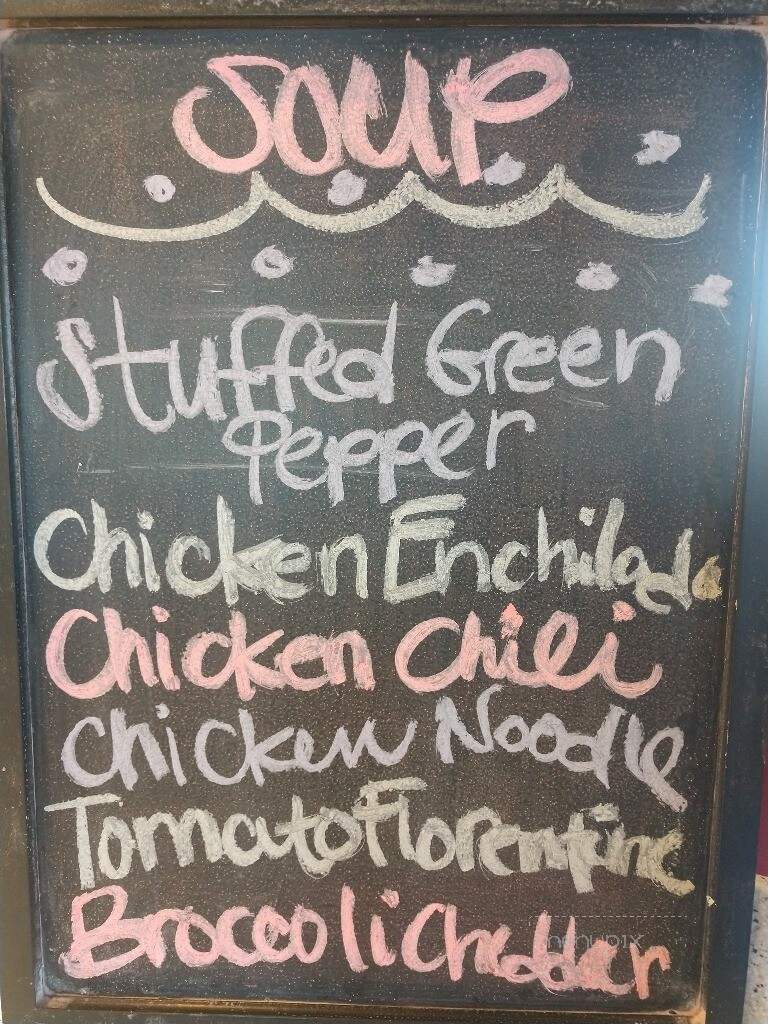 Soup
Stuffed Green
Pepper
Chicken Enchilada
Chicken Chili
Chicken Noodle
Tomato Florentine
Broccoli Cheddar
menupix